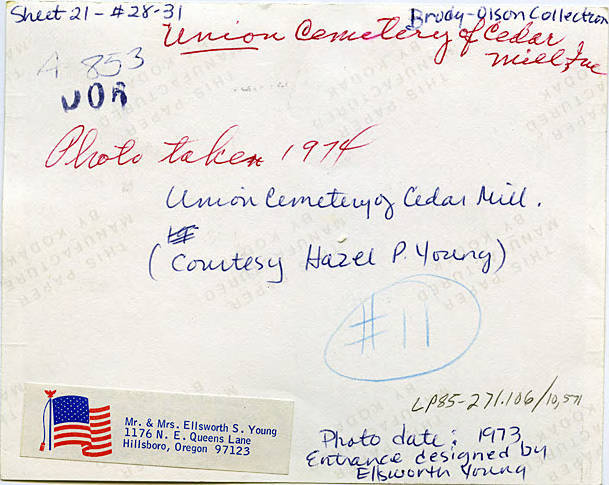 Sheet 21 - #28-31
Brody-Olson Collection
Union Cemetery of Cedar
Mill, Inc
A 853
JOR
Photo taken 1974
Union Cemetery of Cedar Mill.
(Courtesy Hazel P. Young)
#11
LP85-271.106/10,571
Mr. & Mrs. Ellsworth S. Young
1176 N. E. Queens Lane
Hillsboro, Oregon 97123
Photo date: 1973
Entrance designed by
Ellsworth Young
THIS PAPER
MANUFACTURED
BY KODAK